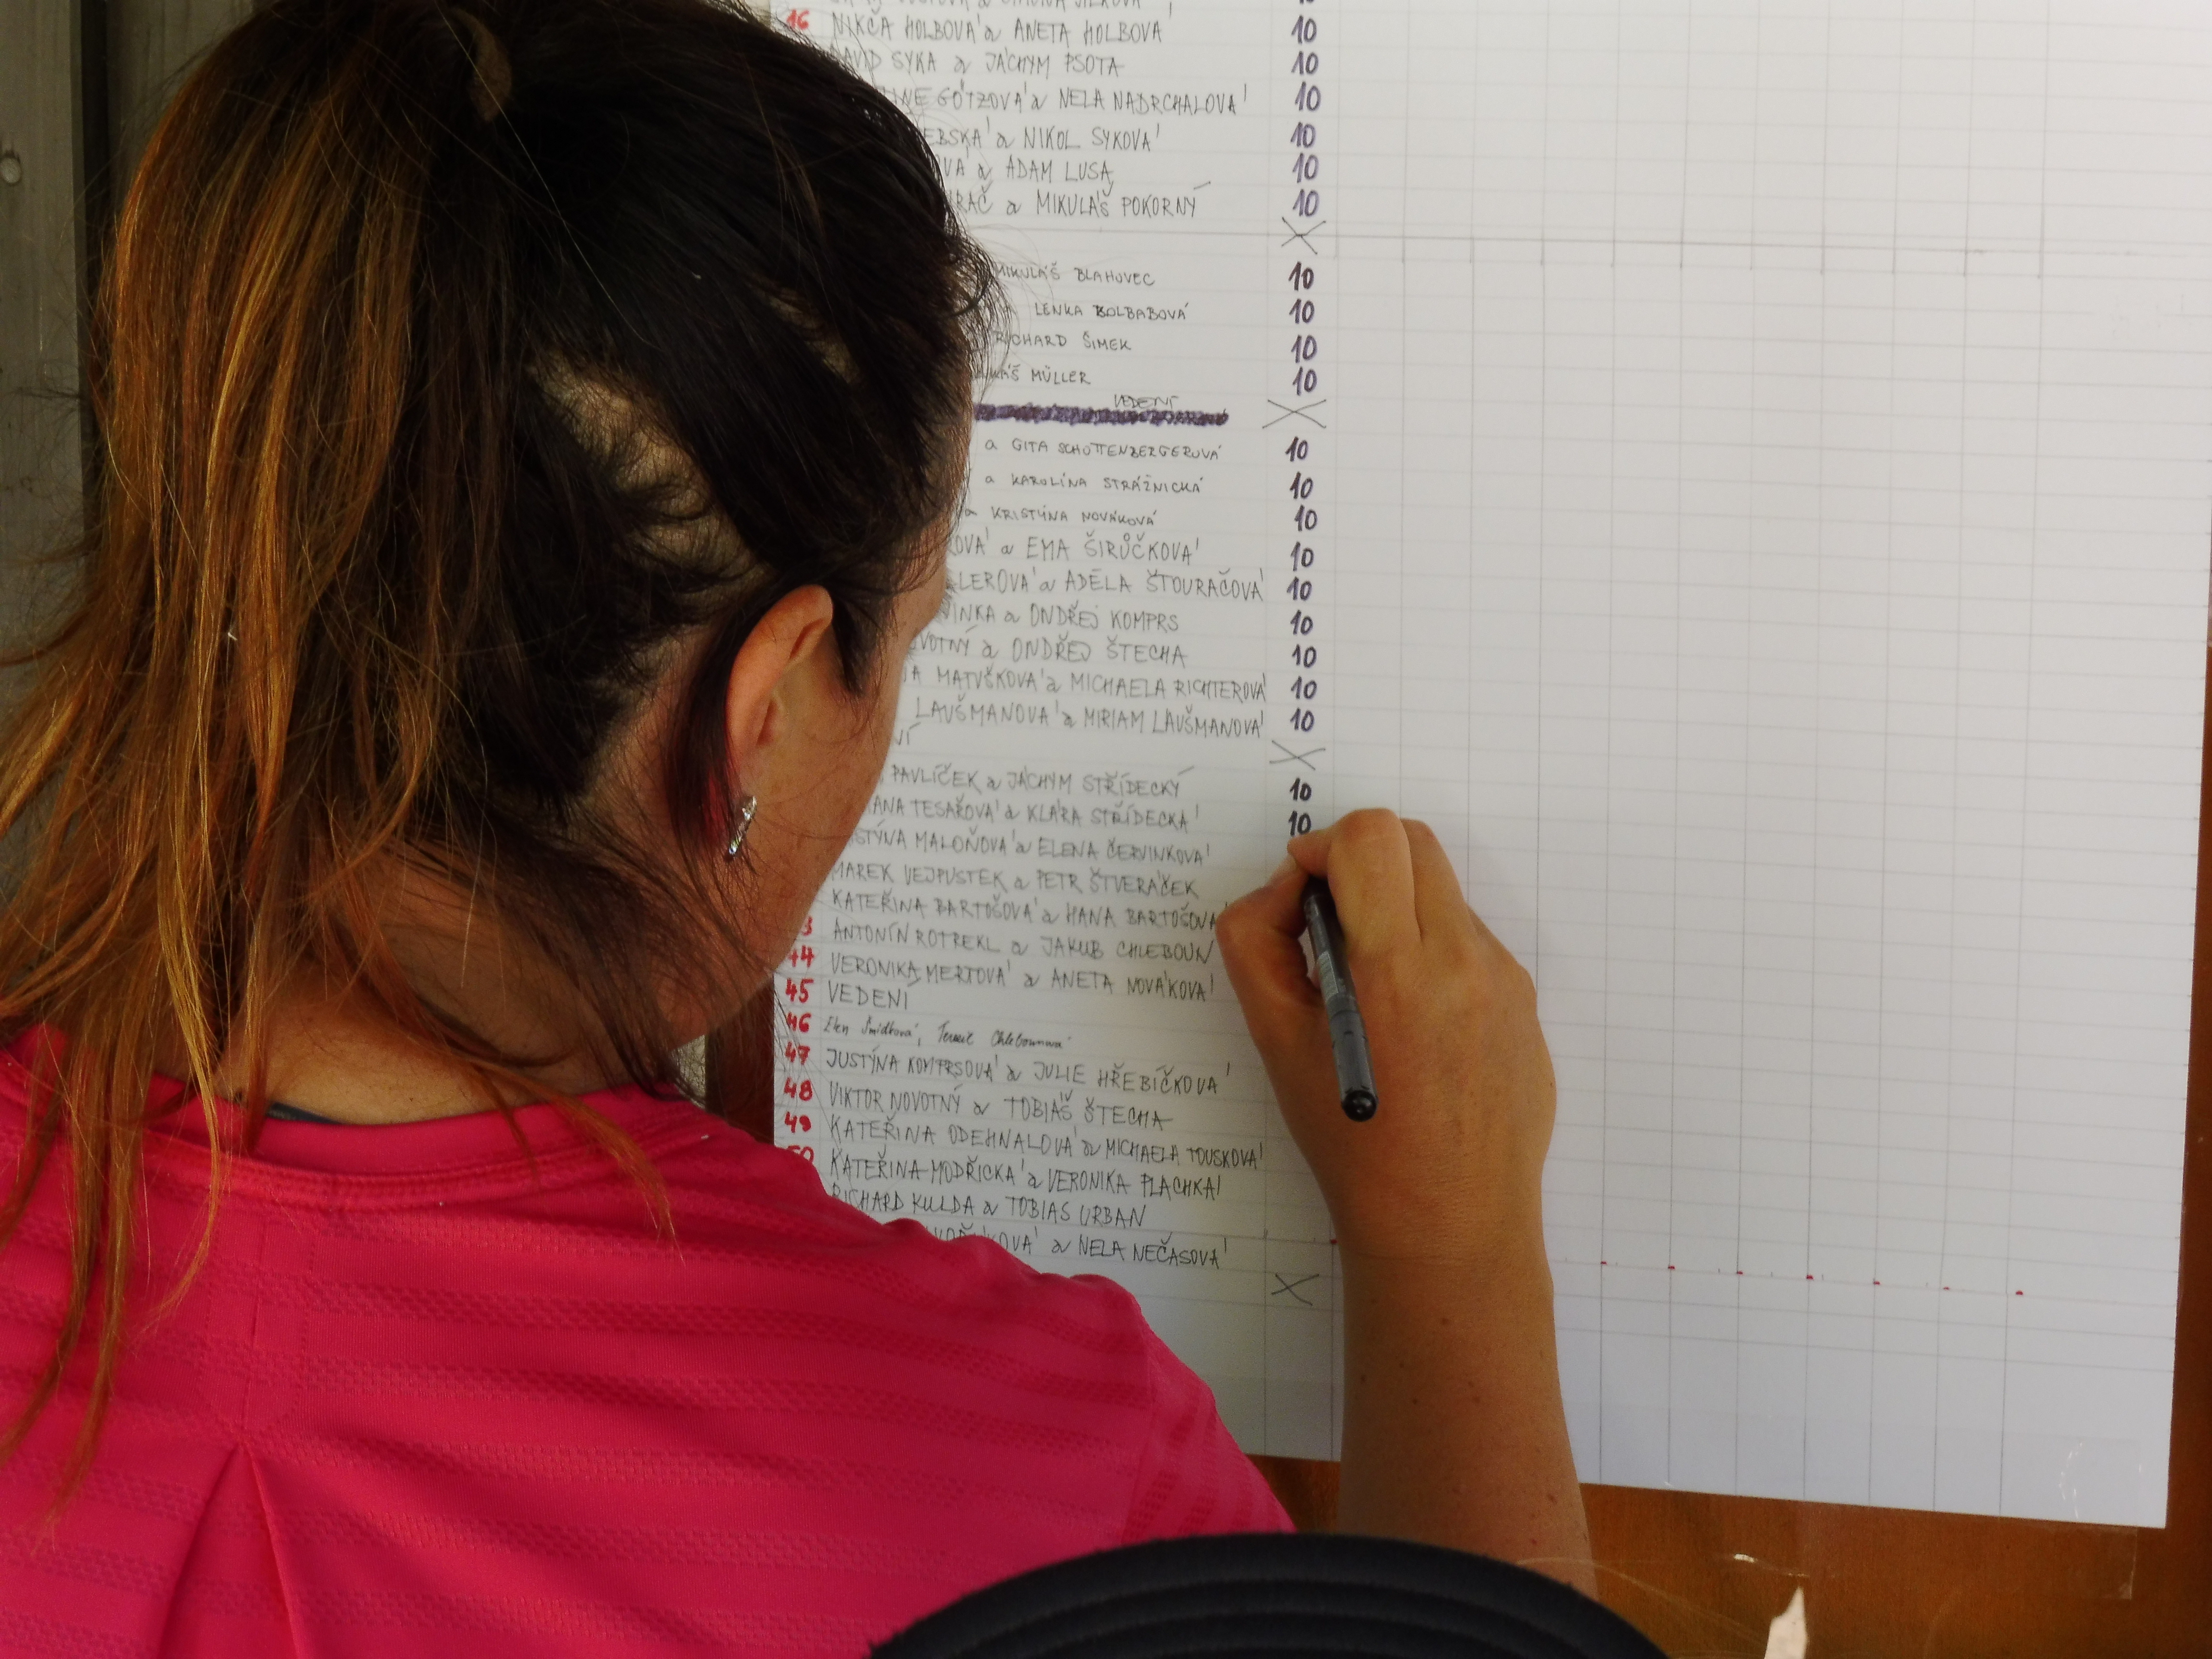 16 NIKČA HOLBOVÁ a ANETA HOLBOVÁ 10
DAVID SYKA a JÁCHYM PSOTA 10
GÖTZOVÁ a NELA NADRCHALOVÁ 10
a NIKOL SYKOVÁ 10
a ADAM LUSA 10
a MIKULÁŠ POKORNÝ 10
MIKULÁŠ BLAHOVEC 10
LENKA BOLBABOVÁ 10
RICHARD ŠIMEK 10
MÜLLER 10
VEDENÍ
a GITA SCHOTTENBERGEROVÁ 10
a KAROLÍNA STRÁŽNICKÁ 10
a KRISTÝNA NOVÁKOVÁ 10
a EMA ŠIRŮČKOVÁ 10
a ADÉLA ŠTOURAČOVÁ 10
a ONDŘEJ KOMPRS 10
a ONDŘEJ ŠTECHA 10
MATUŠKOVÁ a MICHAELA RICHTEROVÁ 10
LAUŠMANOVÁ a MIRIAM LAUŠMANOVÁ 10
PAVLÍČEK a JÁCHYM STŘÍDECKÝ 10
TESAŘOVÁ a KLÁRA STŘÍDECKÁ 10
MALOŇOVÁ a ELENA ČERVINKOVÁ
MAREK VEJPUSTEK a PETR ŠTVERÁČEK
KATEŘINA BARTOŠOVÁ a HANA BARTOŠOVÁ
ANTONÍN ROTREKL a JAKUB CHLEBOUN
44 VERONIKA MERTOVÁ a ANETA NOVÁKOVÁ
45 VEDENÍ
46 Chlebounová
47 JUSTÝNA KOMPRSOVÁ a JULIE HŘEBÍČKOVÁ
48 VIKTOR NOVOTNÝ a TOBIÁŠ ŠTECHA
49 KATEŘINA ODEHNALOVÁ a MICHAELA TOUSKOVÁ
50 KATEŘINA MODŘICKÁ a VERONIKA PLACHKÁ
RICHARD KULDA a TOBIAS URBAN
a NELA NEČASOVÁ